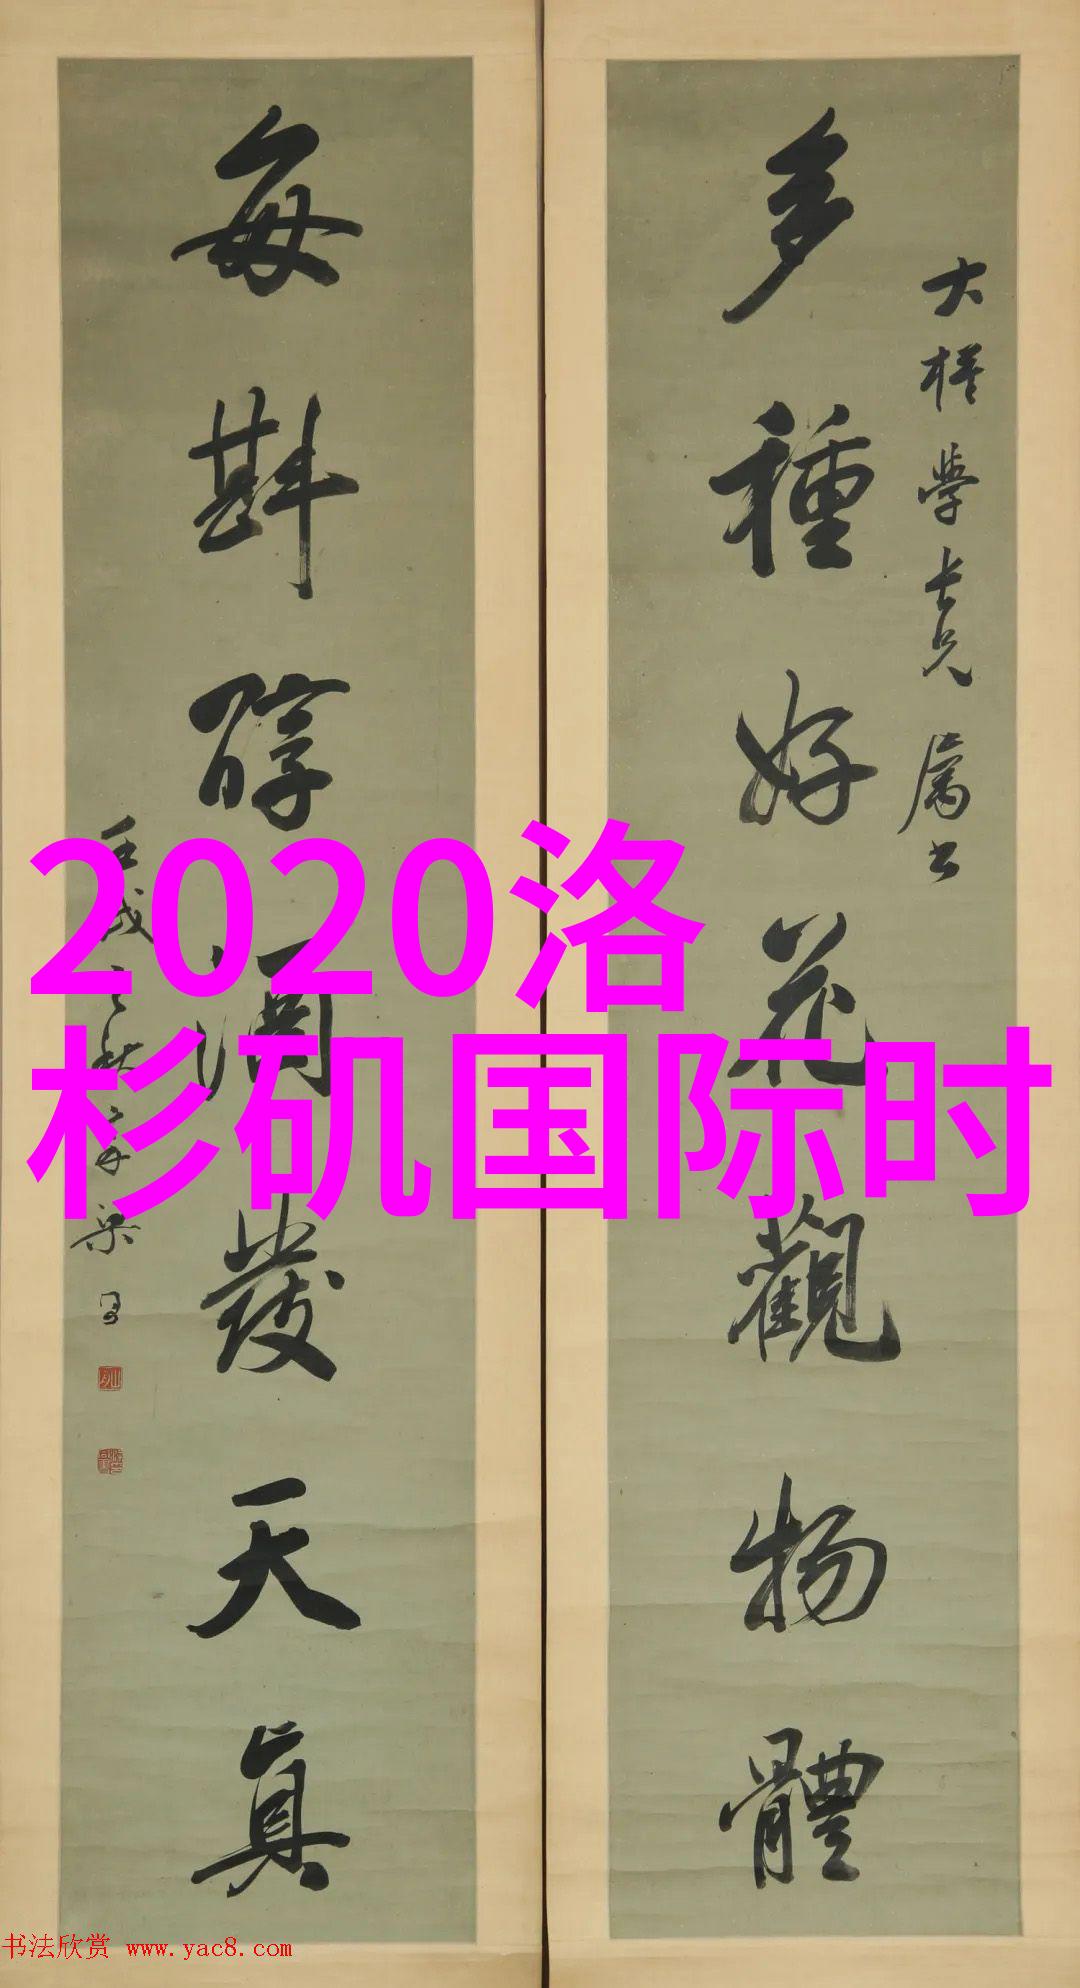 多種好花觀物體
大桹學長兄屬書
每斟醇酒發天真
壬戌之秋
2020洛
杉矶国际时
书法欣赏 www.yac8.com